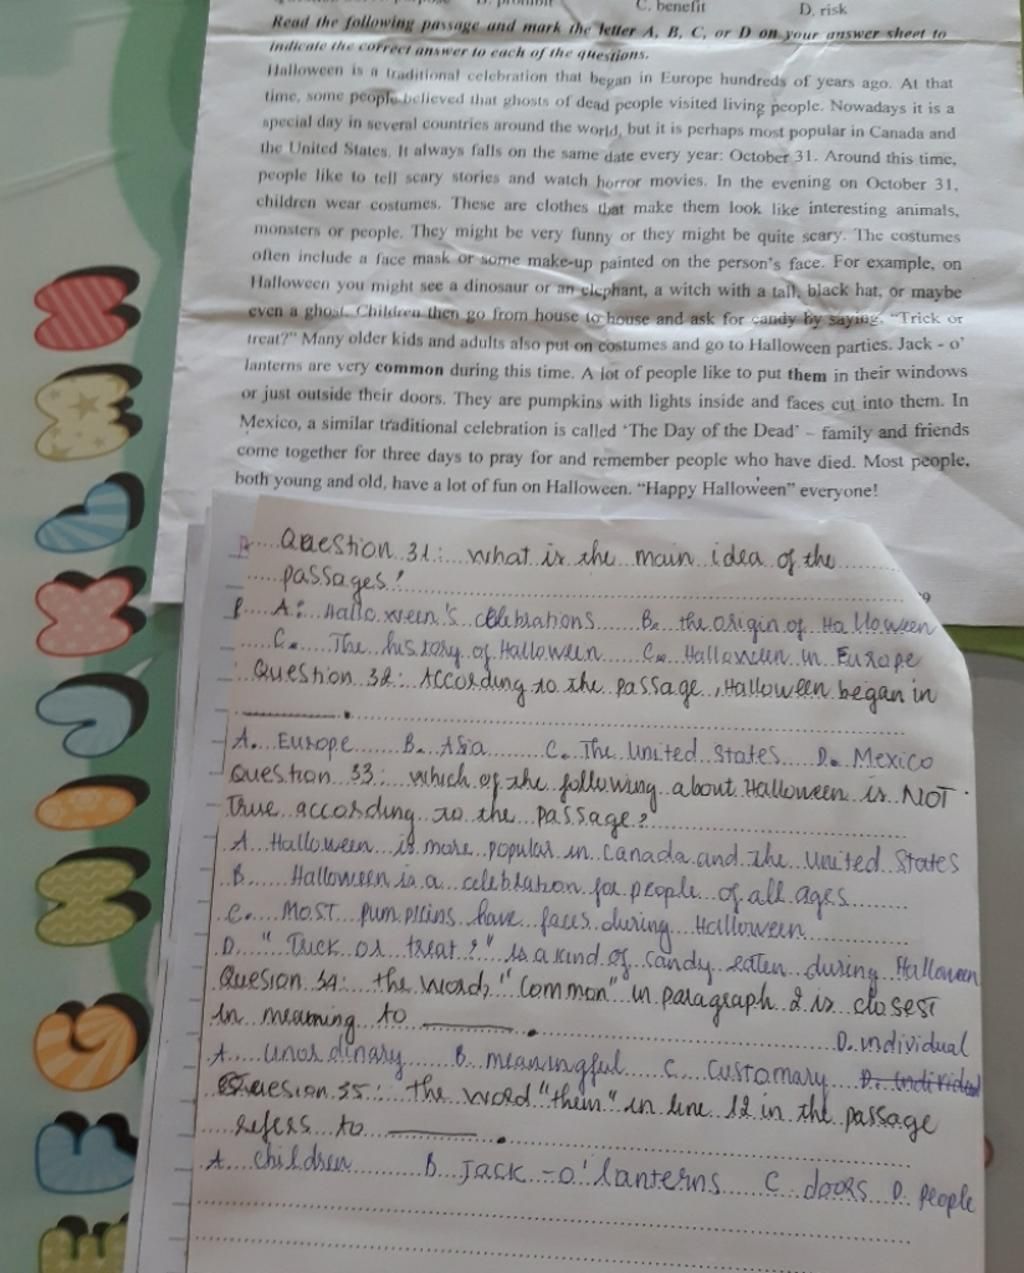 C. benefit D. risk
Read the following passage and mark the letter A, B, C, or D on your answer sheet to
indicate the correct answer to each of the questions.
Halloween is a traditional celebration that began in Europe hundreds of years ago. At that
time, some people believed that ghosts of dead people visited living people. Nowadays it is a
special day in several countries around the world, but it is perhaps most popular in Canada and
the United States. It always falls on the same date every year: October 31. Around this time,
people like to tell scary stories and watch horror movies. In the evening on October 31,
children wear costumes. These are clothes that make them look like interesting animals,
monsters or people. They might be very funny or they might be quite scary. The costumes
often include a face mask or some make-up painted on the person's face. For example, on
Halloween you might see a dinosaur or an elephant, a witch with a tall, black hat, or maybe
even a ghost. Children then go from house to house and ask for candy by saying, "Trick or
treat?" Many older kids and adults also put on costumes and go to Halloween parties. Jack - o'
lanterns are very common during this time. A lot of people like to put them in their windows
or just outside their doors. They are pumpkins with lights inside and faces cut into them. In
Mexico, a similar traditional celebration is called 'The Day of the Dead' – family and friends
come together for three days to pray for and remember people who have died. Most people,
both young and old, have a lot of fun on Halloween. "Happy Halloween" everyone!
Question 31: what is the main idea of the
passages?
A: Halloween's celebrations B. the origin of Halloween
C. The history of Halloween C. Halloween in Europe
Question 32: According to the passage, Halloween began in
.
A. Europe B. Asia C. The United States D. Mexico
Question 33: which of the following about Halloween is NOT
true according to the passage?
A. Halloween is more popular in Canada and the United States
B. Halloween is a celebration for people of all ages
C. Most pumpkins have faces during Halloween
D. "Trick or treat?" is a kind of candy eaten during Halloween
Quesion 34: the word, "Common" in paragraph 2 is closest
in meaning to .
D. individual
A. unordinary B. meaningful C. customary
Quesion 35: the word "them" in line 12 in the passage
refers to .
A. children B. Jack-o'lanterns C. doors D. people